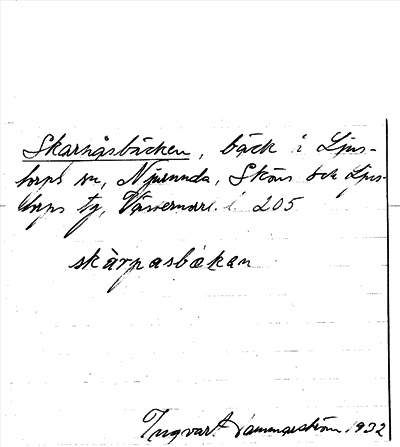 Skarnåsbäcken, bäck i Ljus-
torps sn, Njurunda, Sköns och Ljus-
torps tg, Västernorrl. l 205
skàrnasbäkan
Ingvart Hammarström 1932